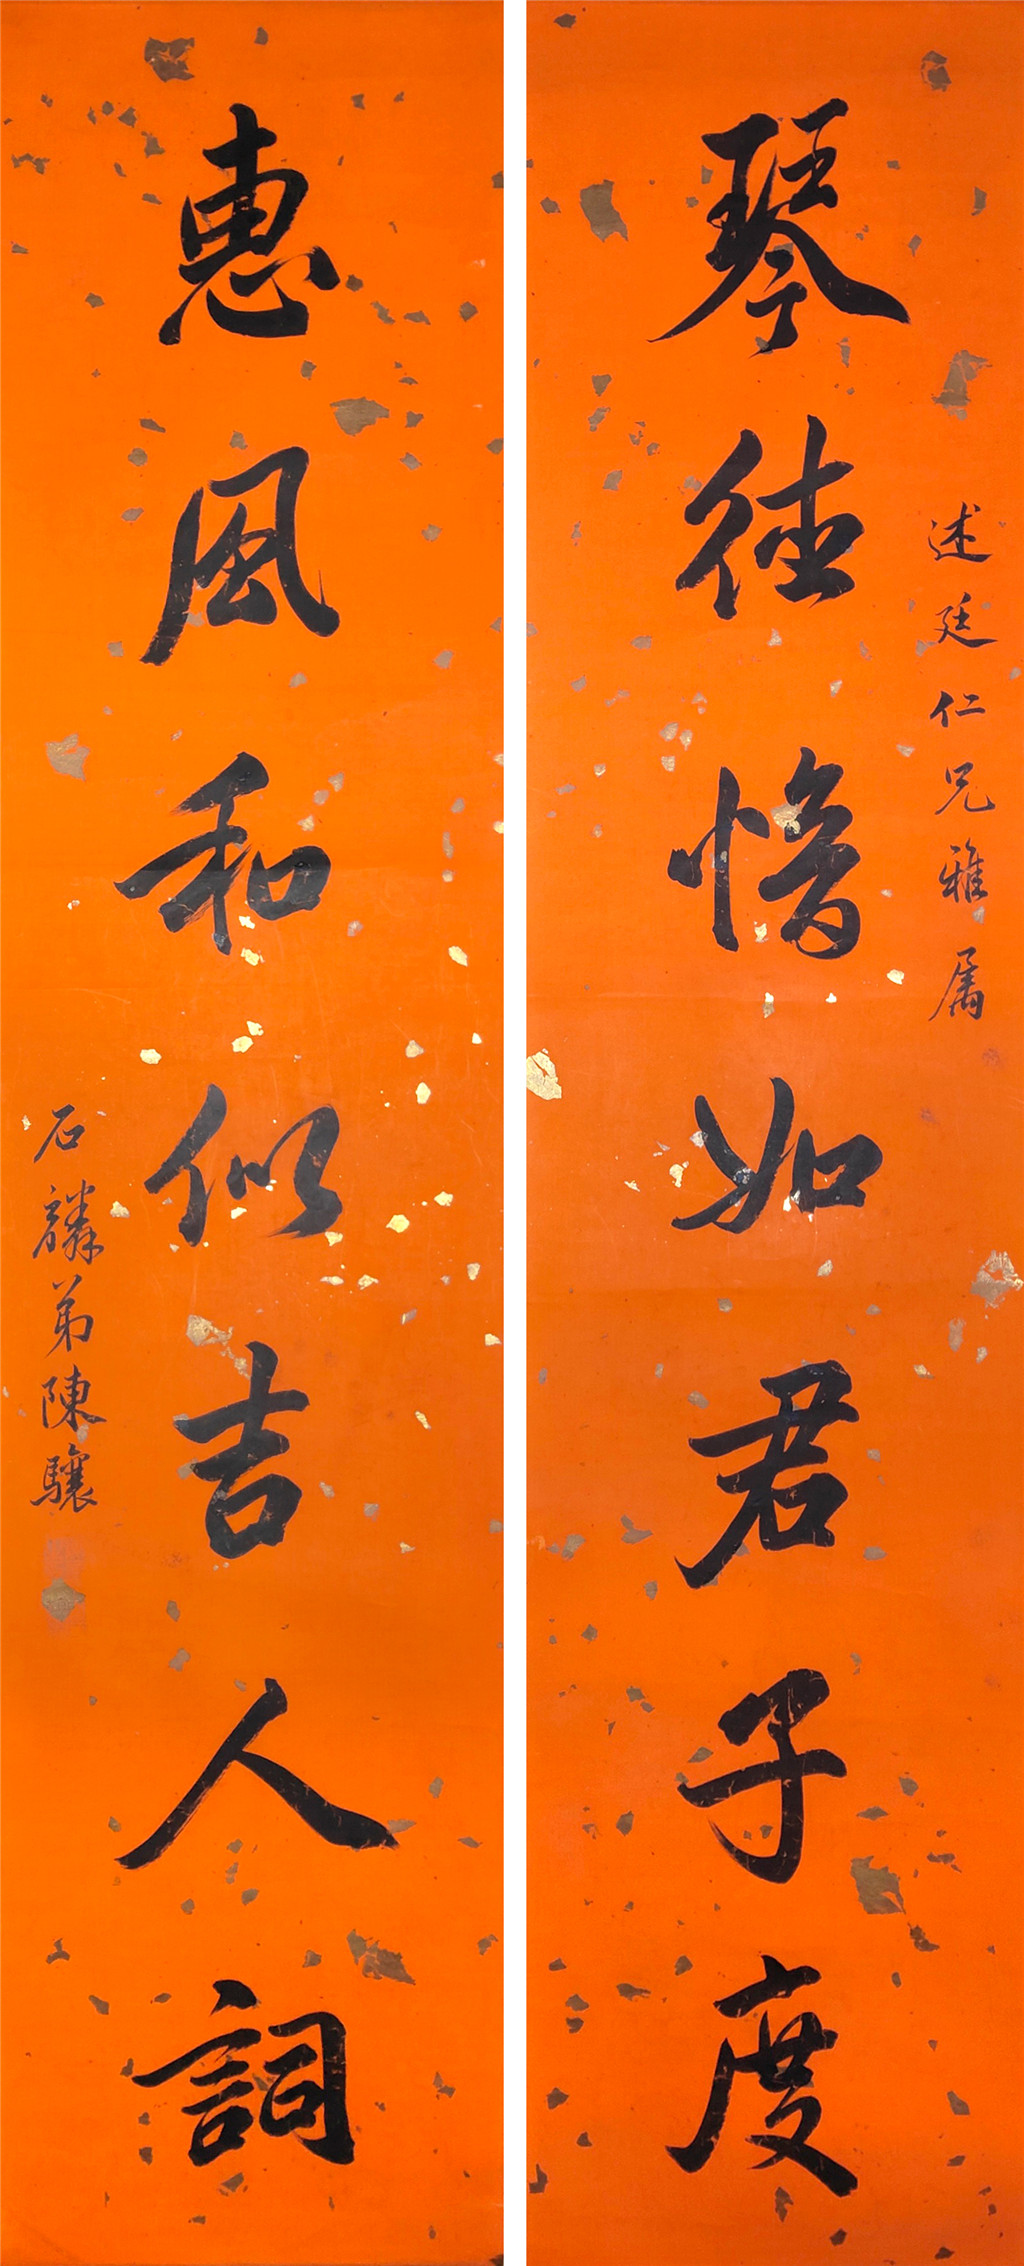 述廷仁兄雅属
琴德愔如君子度
惠風和似吉人詞
石麟弟陳驤